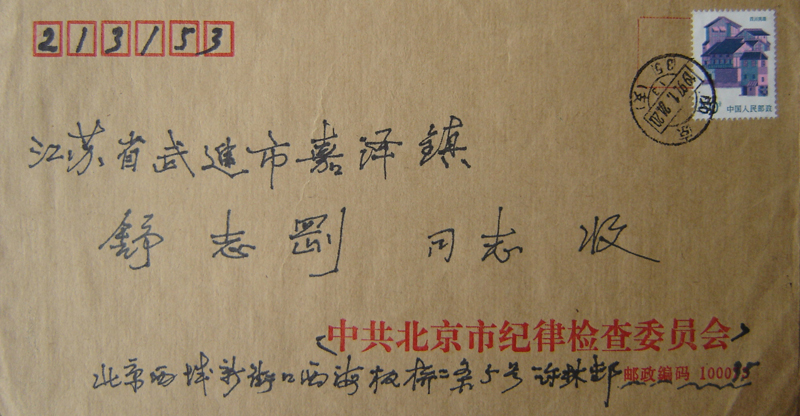 213153
中国人民邮政
江苏省武进市嘉泽镇
舒志刚 同志 收
<中共北京市纪律检查委员会>
北京西城新街口西海板桥二条5号
邮政编码 100035